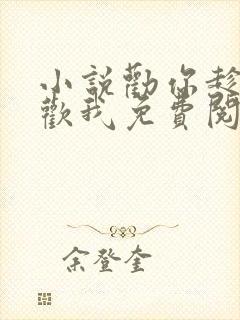 小說勸你趁
歡我免費閱
余登奎